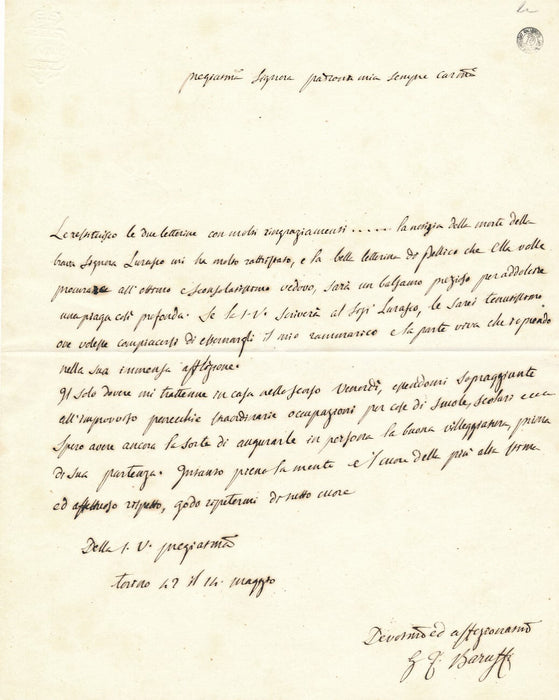 pregiatma Signora padrona mia sempre carma
Le restituisco le due letterine con molti ringraziamenti ...... la notizia della morte della
brava Signora Lurasco mi ha molto rattristato, e la bella letterina di Pellico che Ella volle
procurare all'ottimo e sconsolatissimo vedovo, sarà un balsamo prezioso per addolcire
una piaga così profonda. Se la S.V. scriverà al Sigr Lurasco, le sarei tenutissimo
ove volesse compiacersi di esternargli il mio rammarico e la parte viva che io prendo
nella sua immensa afflizione.
Il solo dovere mi trattenne in casa nello scorso Venerdì, essendomi sopraggiunte
all'improvviso parecchie straordinarie occupazioni per cose di scuole, scolari ecc.
Spero avere ancora la sorte di augurarle in persona la buona villeggiatura, prima
di sua partenza. Intanto piena la mente e il cuore della più alta stima
ed affettuoso rispetto, godo ripetermi di tutto cuore
Della S.V. pregiatma
Torino 42 il 14. maggio
Devotmo ed affezionatmo
G. F. Baruffi